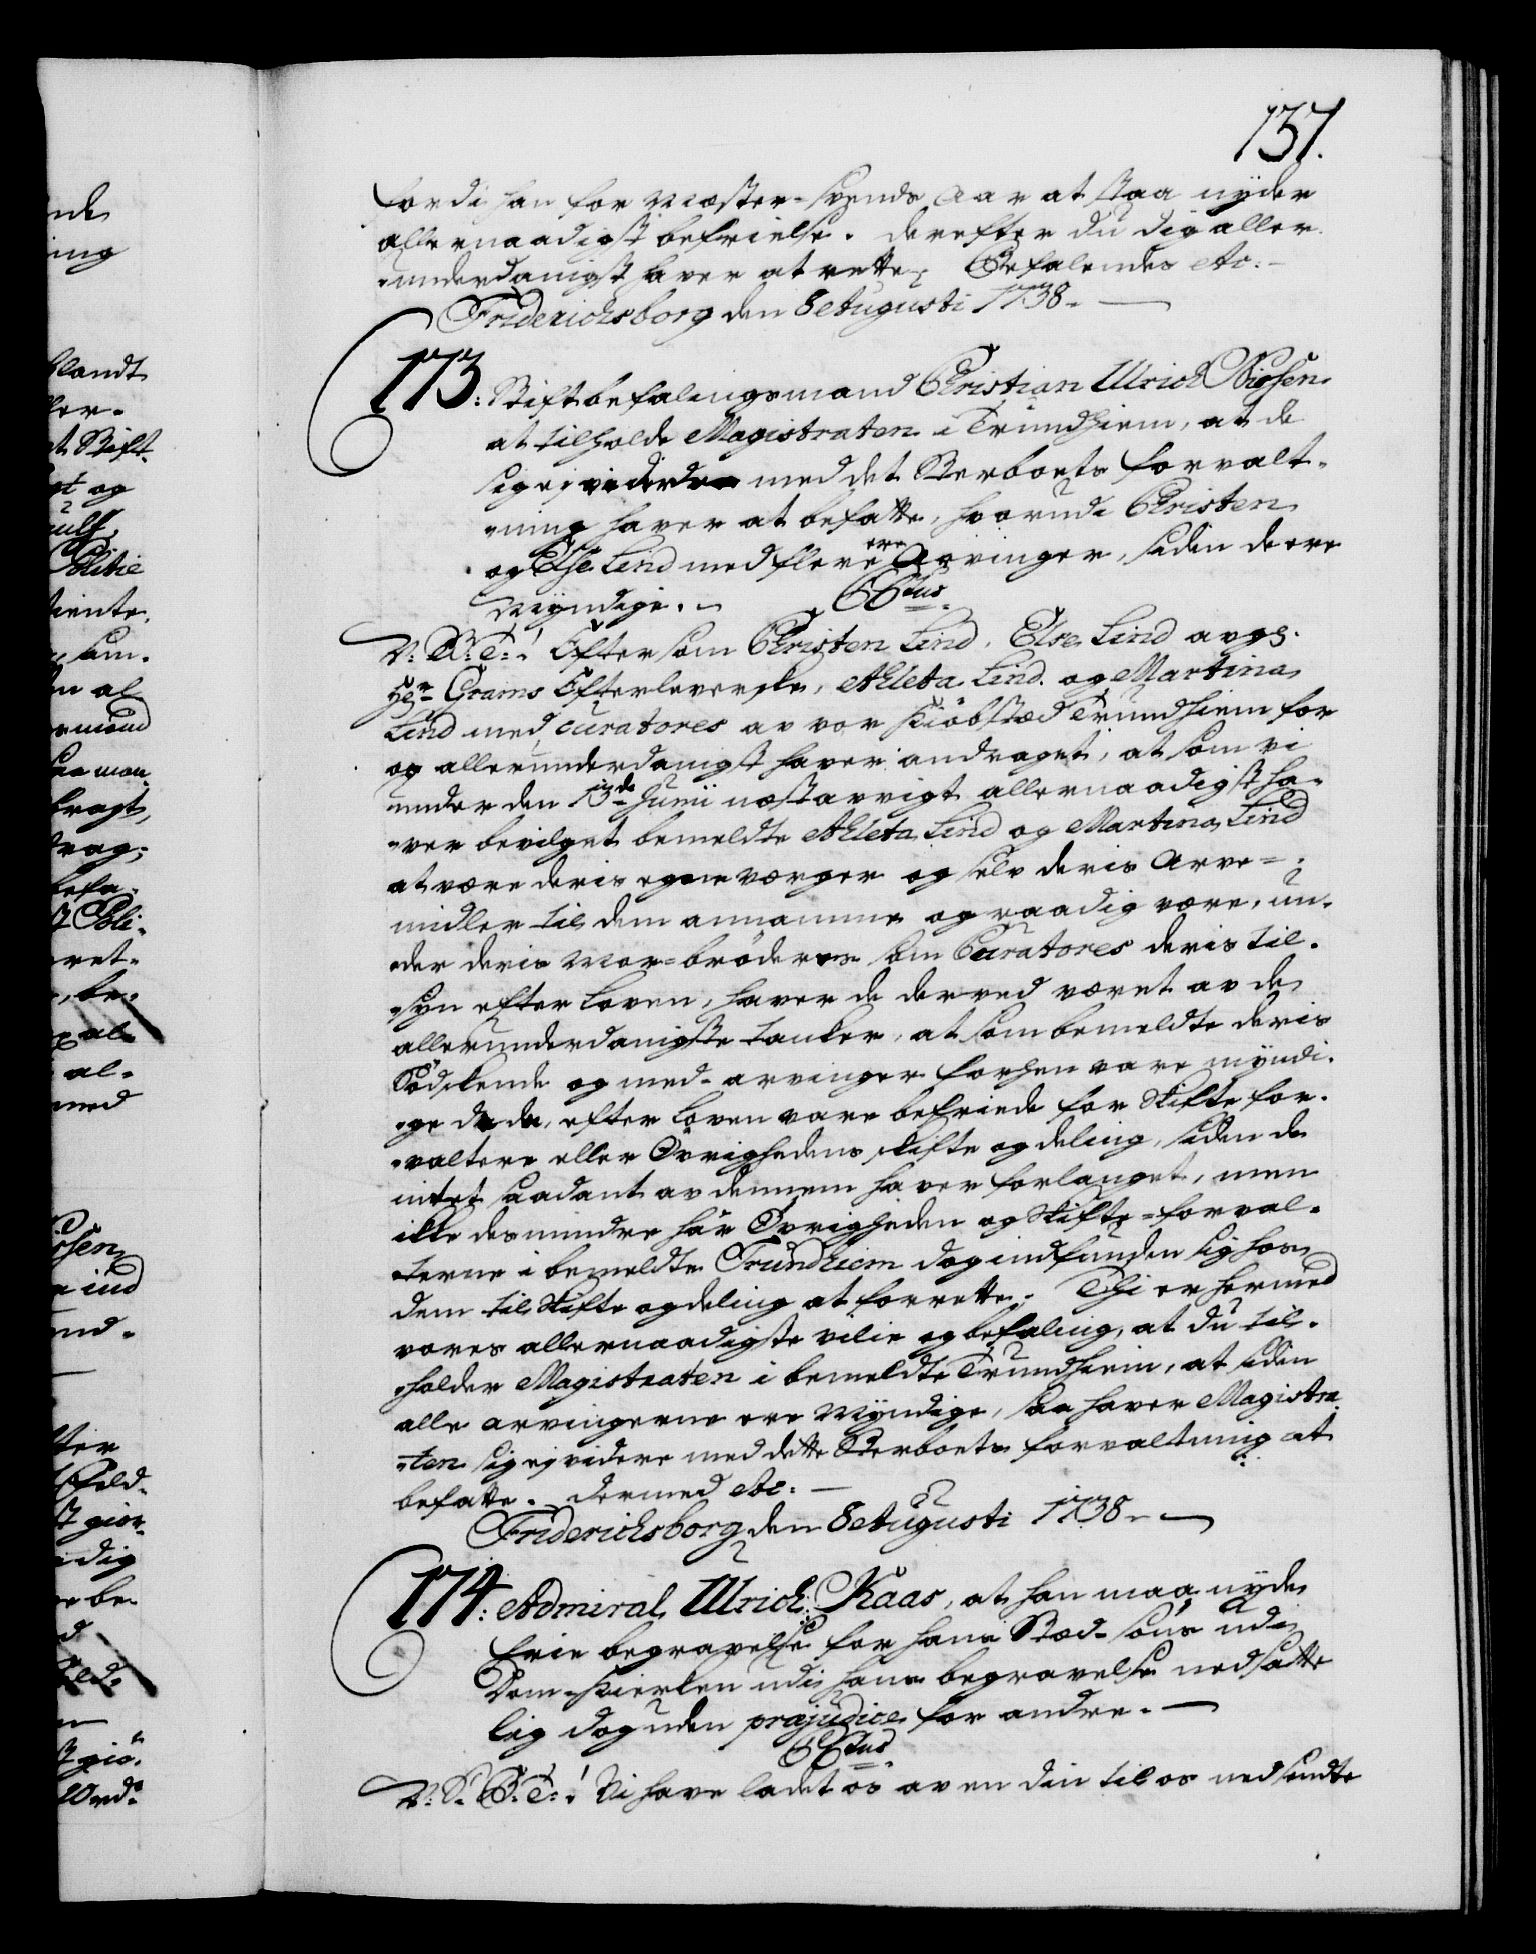 137.
fordi han for Mester-svends Aar at staa nyder
allernaadigst befrielse. derefter du dig aller-
underdanigst haver at rette; Befalendes etc:
Friderichsborg den 8 Augusti 1738.
173: Stiftbefalingsmand Christian Ulrich Nissen
at tilholde Magistraten i Trundhiem, at de
sig ej videre med det Sterboets forvalt-
ning haver at befatte, hvorudi Christen
og Else Lind med flere ere Arvinger, siden de ere
Myndige.
C 6tus
V: G: T: Eftersom Christen Lind, Else Lind avg:
Hr Grams Efterleverske, Ahleta Lind og Martina
Lind med curatores av vor Kiöbstæd Trundhiem for
os allerunderdanigst haver andraget, at som vi
under den 13de Junii næstavvigt allernaadigst ha-
ver bevilget bemeldte Ahleta Lind og Martina Lind
at være deris egne værger og selv deris Arve-
midler til dem annamme og raadig være, un-
der deris Mor-bröders som Curatores deris til-
syn efter Loven, haver de derved været av de
allerunderdanigste tanker, at som bemeldte deris
Södskende og med-arvinger forhen vare myndi-
ge de da, efter Loven vare befriede for Skifte for-
valtere eller Övrighedens skifte og deling, siden de
intet saadant av dennem haver forlanget, men
ikke desmindre har Övrigheden og Skifte-forval-
terne i bemeldte Trundhiem dog indfunden sig hos
dem til Skifte og deling at forrette. Thi er hermed
vores allernaadigste vilie og befaling, at du til-
holder Magistraten i bemeldte Trundhiem, at siden
alle arvingerne ere Myndige, saa haver Magistra-
ten sig ej videre med dette Sterboets forvaltning at
befatte. dermed etc:
Friderichsborg den 8 Augusti 1738.
174: Admiral Ulrich Kaas, at han maa nyde
frie begravelse for hans Sted-söns udi
Dom-Kierken udi hans begravelse nedsatte
lig dog uden præjudice for andre.
C 6tus
V: G: T: Vi have ladet os av en din til os nedsendte